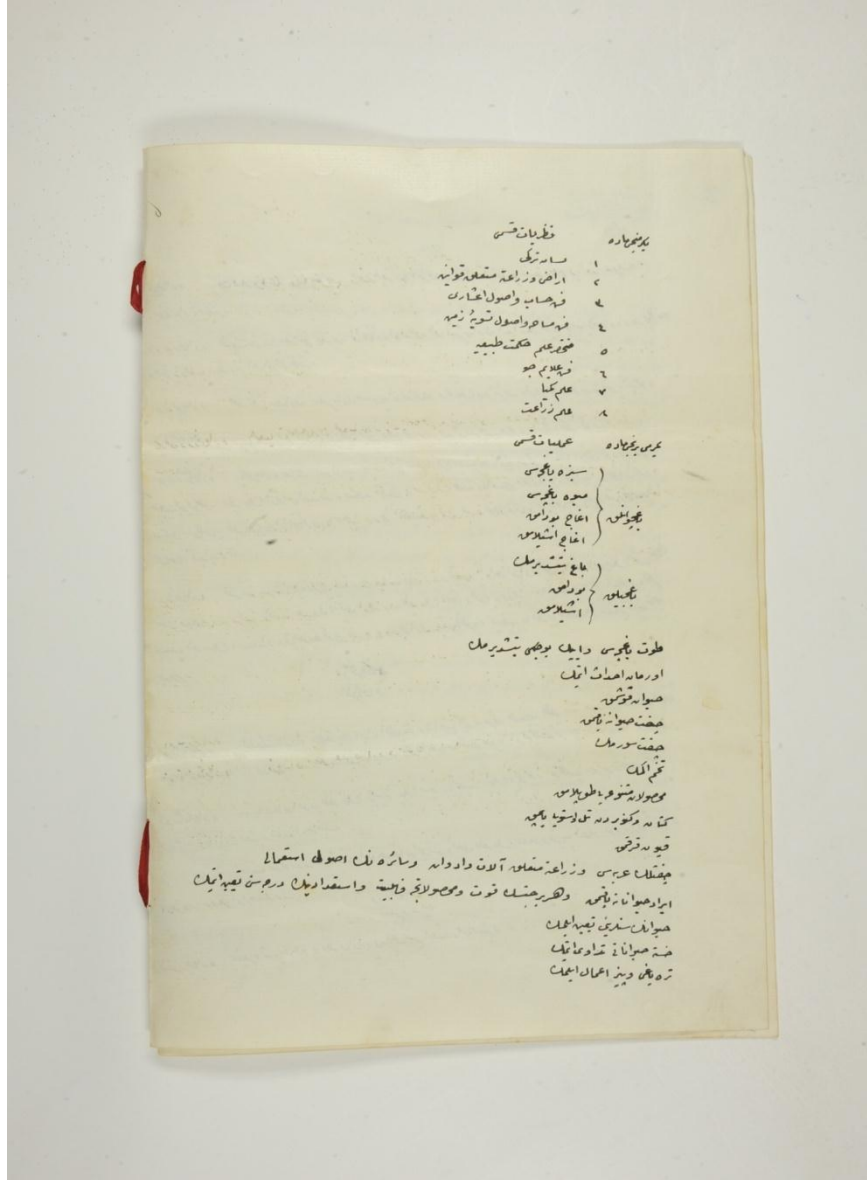 یکرمنجی ماده نظریات قسمی
١ لسان ترکی
٢ اراضی و زراعته متعلق قوانین
٣ فن حساب و اصول اعشاری
٤ فن مساحه و اصول تسویهٔ زمین
٥ مختصر علم حکمت طبیعیه
٦ فن علایم جو
٧ علم کیمیا
٨ علم زراعت
یکرمی برنجی ماده عملیات قسمی
باغچوانلق
سبزه باغچوسی
میوه باغچوسی
اغاج بودامق
اغاج اشیلامق
باغجیلق
باغ یتشدیرمك
بودامق
اشیلامق
طوت باغچوسی و ایپك بوجكی یتشدیرمك
اورمان احداث ایتمك
حیوان قوشمق
چفت حیواننه باقمق
چفت سورمك
تخم اكمك
محصولات متنوعه یی طوپلامق
كتان و كنویردن تل و استوپا یاپمق
قیون قرقمق
چفتلك عربه سی و زراعته متعلق آلات و ادوات و سائره نك اصول استعمالی
ایراد حیواناتنه باقمق و هر بر جنسك قوت و محصولاتجه قابلیت و استعدادینك درجه سنی تعیین ایتمك
حیوانك سننی تعیین ایلمك
خسته حیواناتی تداوی ایتمك
تره یاغی و پینر اعمال ایلمك